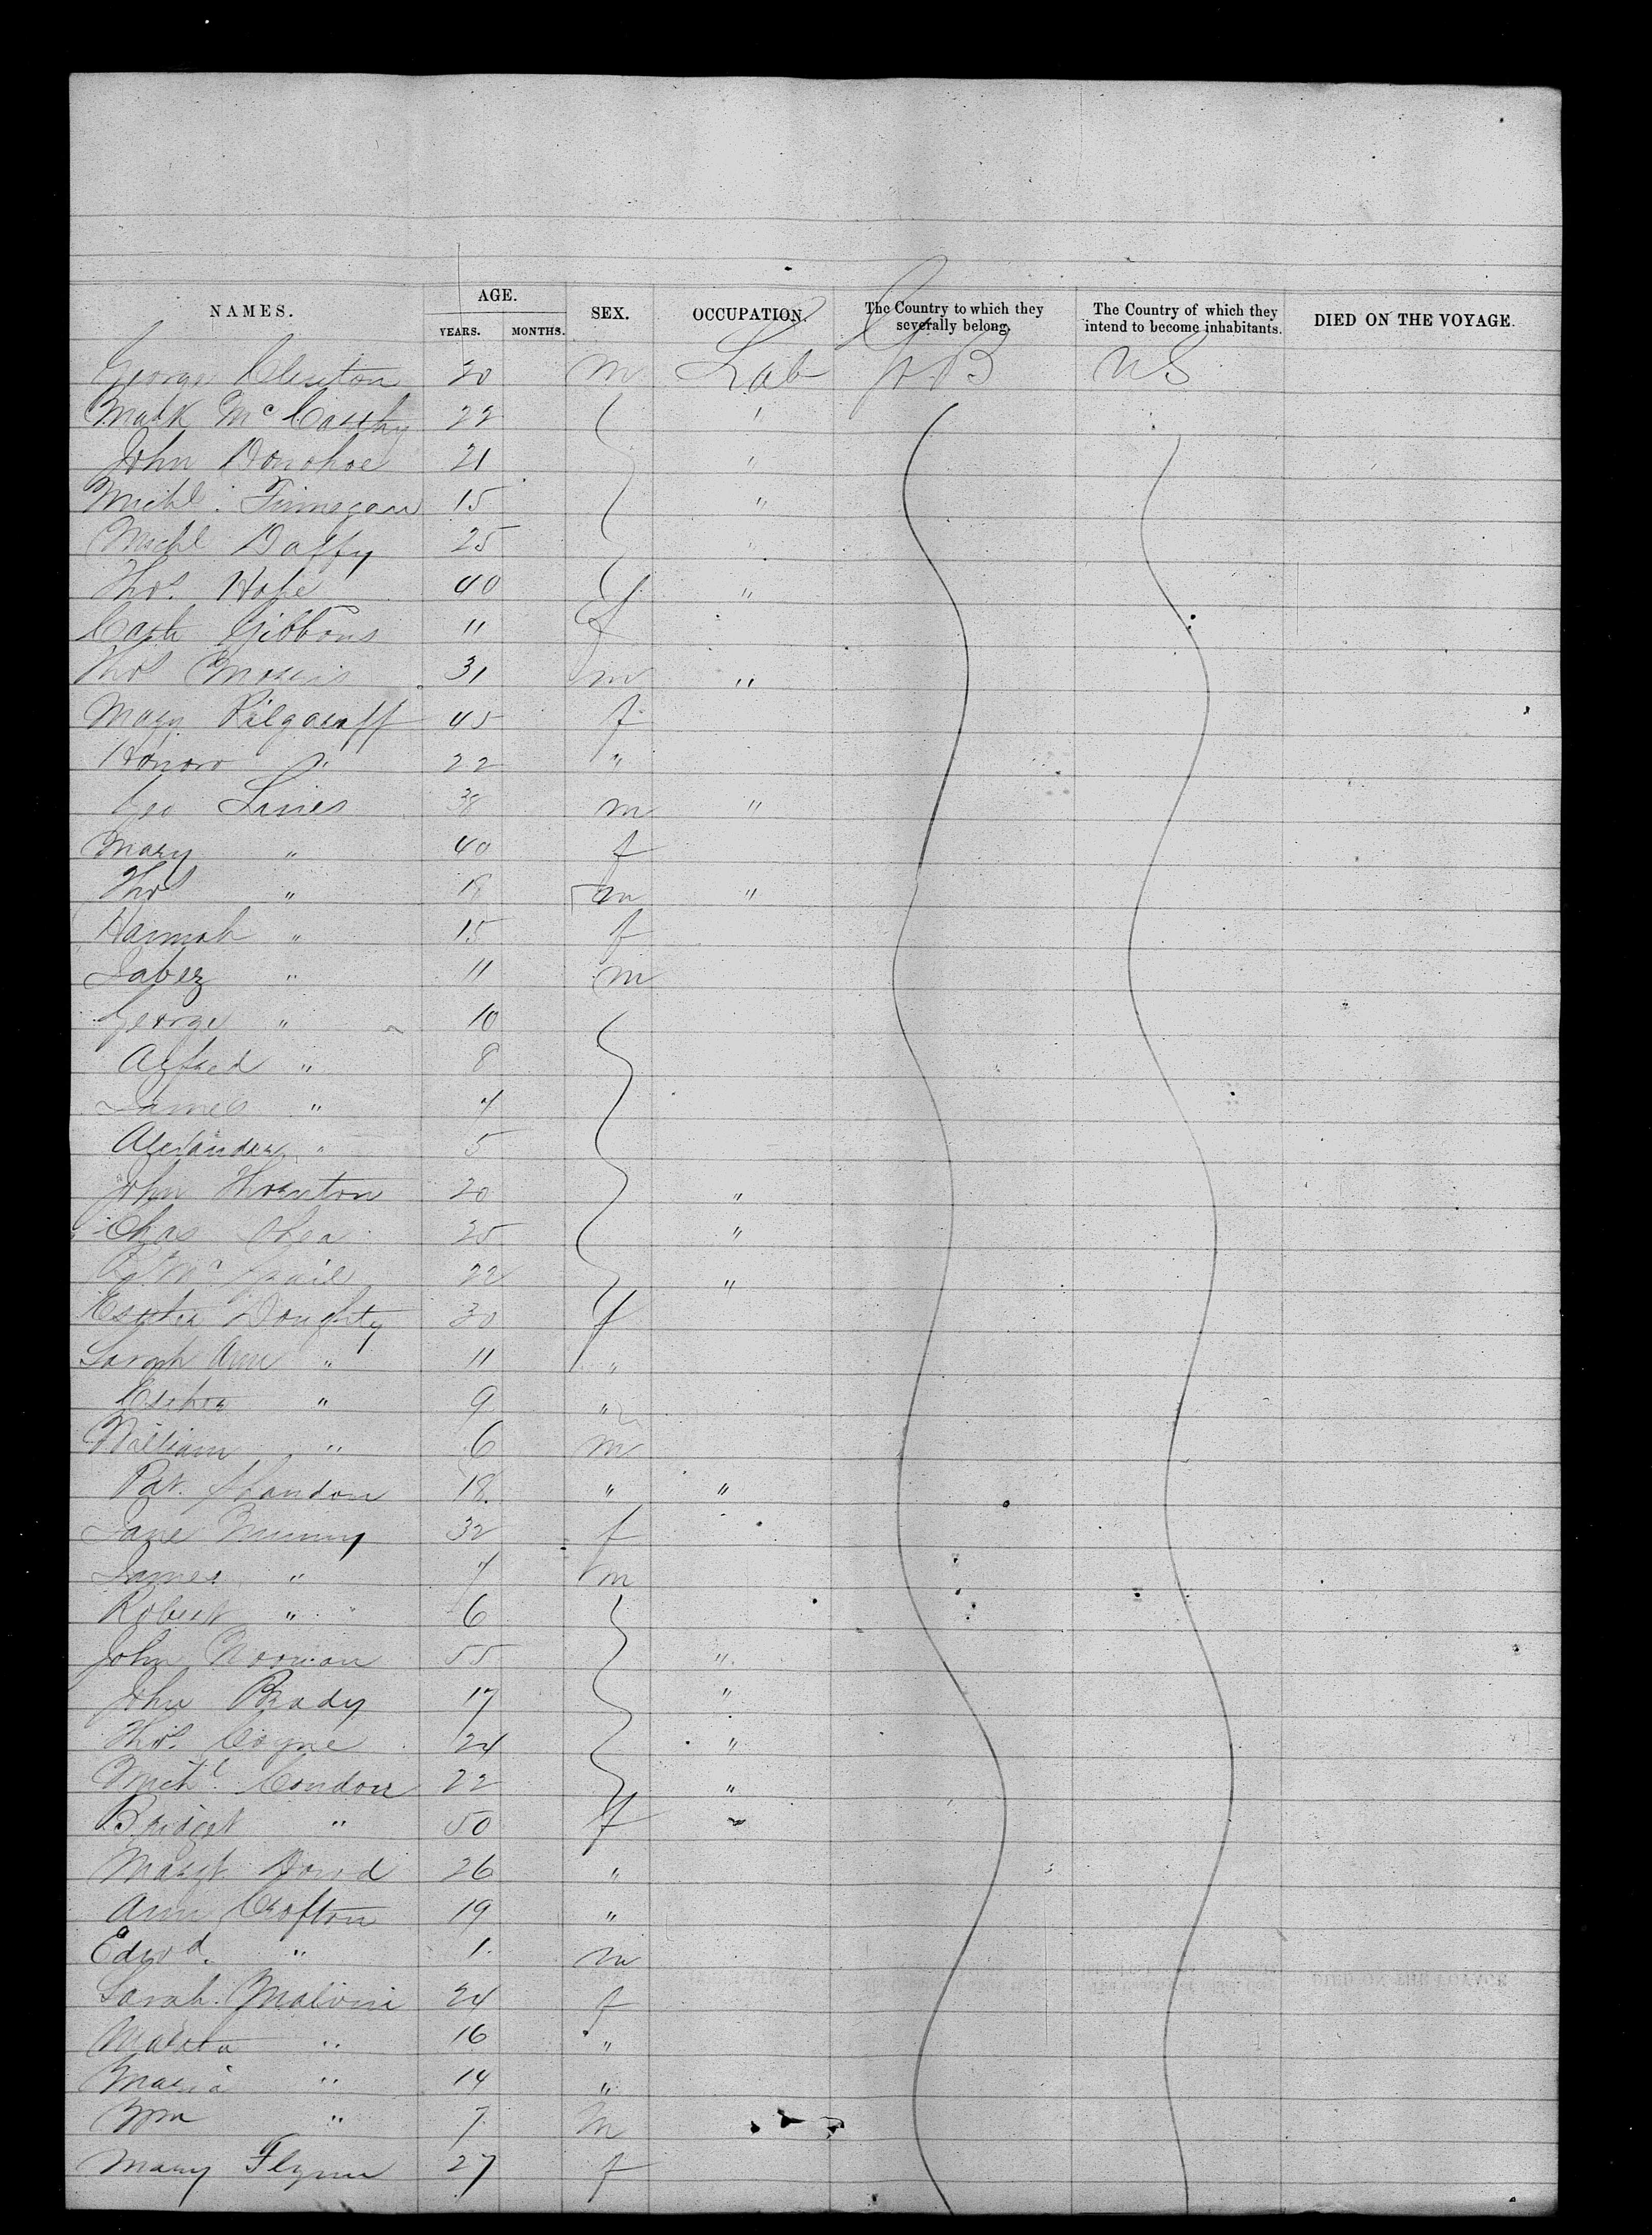 NAMES. AGE. YEARS. MONTHS. SEX. OCCUPATION. The Country to which they severally belong. The Country of which they intend to become inhabitants. DIED ON THE VOYAGE.
George Clinton 20 m Lab GB US
Mark McCarthy 22 "
John Donohoe 21 "
Michl. Finnegan 15 "
Michl Duffy 25 "
Thos. Hope 40 "
Cath Gibbons 11 f
Thos Morris 31 m "
Magy. Kilgariff 45 f
Honor " 22 "
Geo Lines 38 m "
Mary " 40 f
Thos " 18 m "
Hannah " 15 f
Jabez " 11 m
George " 10
Alfred " 8
James " 7
Alexander " 5
John Thornton 20 "
Chas Shea 25 "
22 "
Esther Doughty 30 f
Sarah Ann " 11 "
Esther " 9 "
William " 6 m
Pat. Shandon 18 " "
Jane 32 f
James " 7 m
Robert " 6
John Noonan 55 "
John Brady 17 "
Thos. Coyne 24 "
Michl. Condon 22 "
Bridget " 50 f
Margt. Dowd 26 "
Ann Crofton 19 "
Edwd. " 1 m
Sarah Malvin 24 f
Martha " 16 "
Maria " 14 "
Wm " 7 m
Mary Flynn 27 f